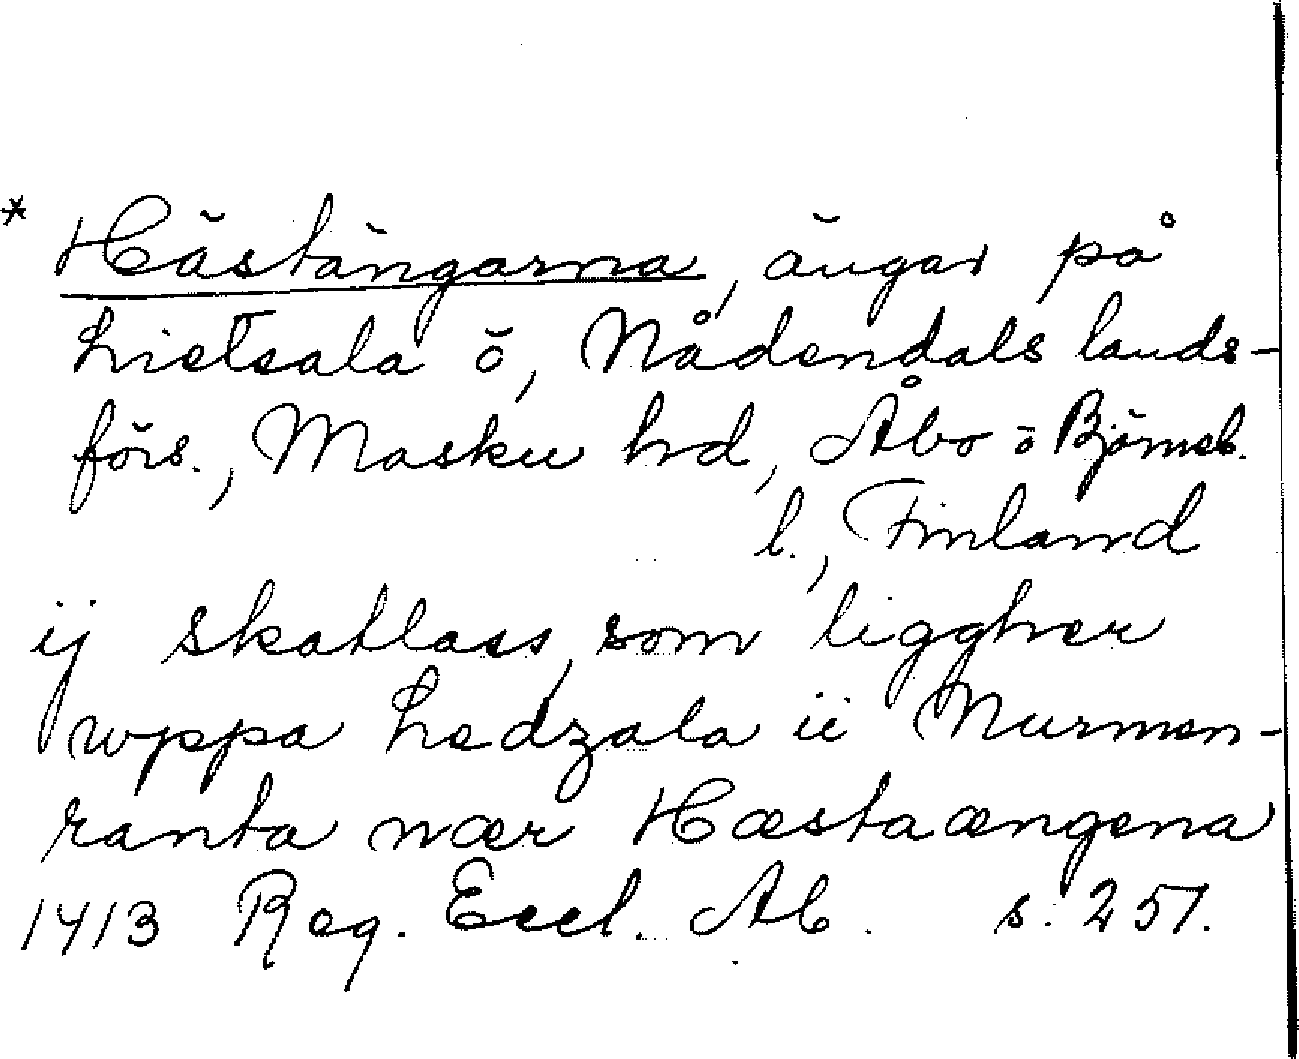 * Hästängarna, ängar på
Lietsala ö, Nådendals lands-
förs., Masku hd, Åbo o Björneb.
l., Finland
ij skatlass, som liggher
wppa Ledzala ii Nurmen-
ranta nær Hæstaængena
1413 Reg. Eccl. Ab. s. 251.